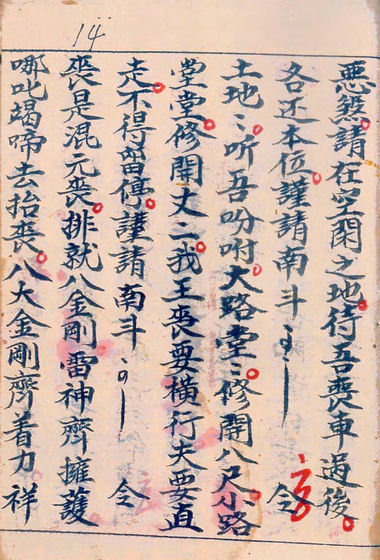 14
惡煞請在空閑之地待吾喪車過後
各还本位謹請南斗 令
土地〻听吾吩咐大路堂〻修開八尺小路
堂堂修開丈二我王喪要橫行夫要直
走不得畄停謹請南斗 令
喪是混元喪排就八金剛雷神齊擁護
哪叱竭啼去抬喪八大金剛齊着力祥